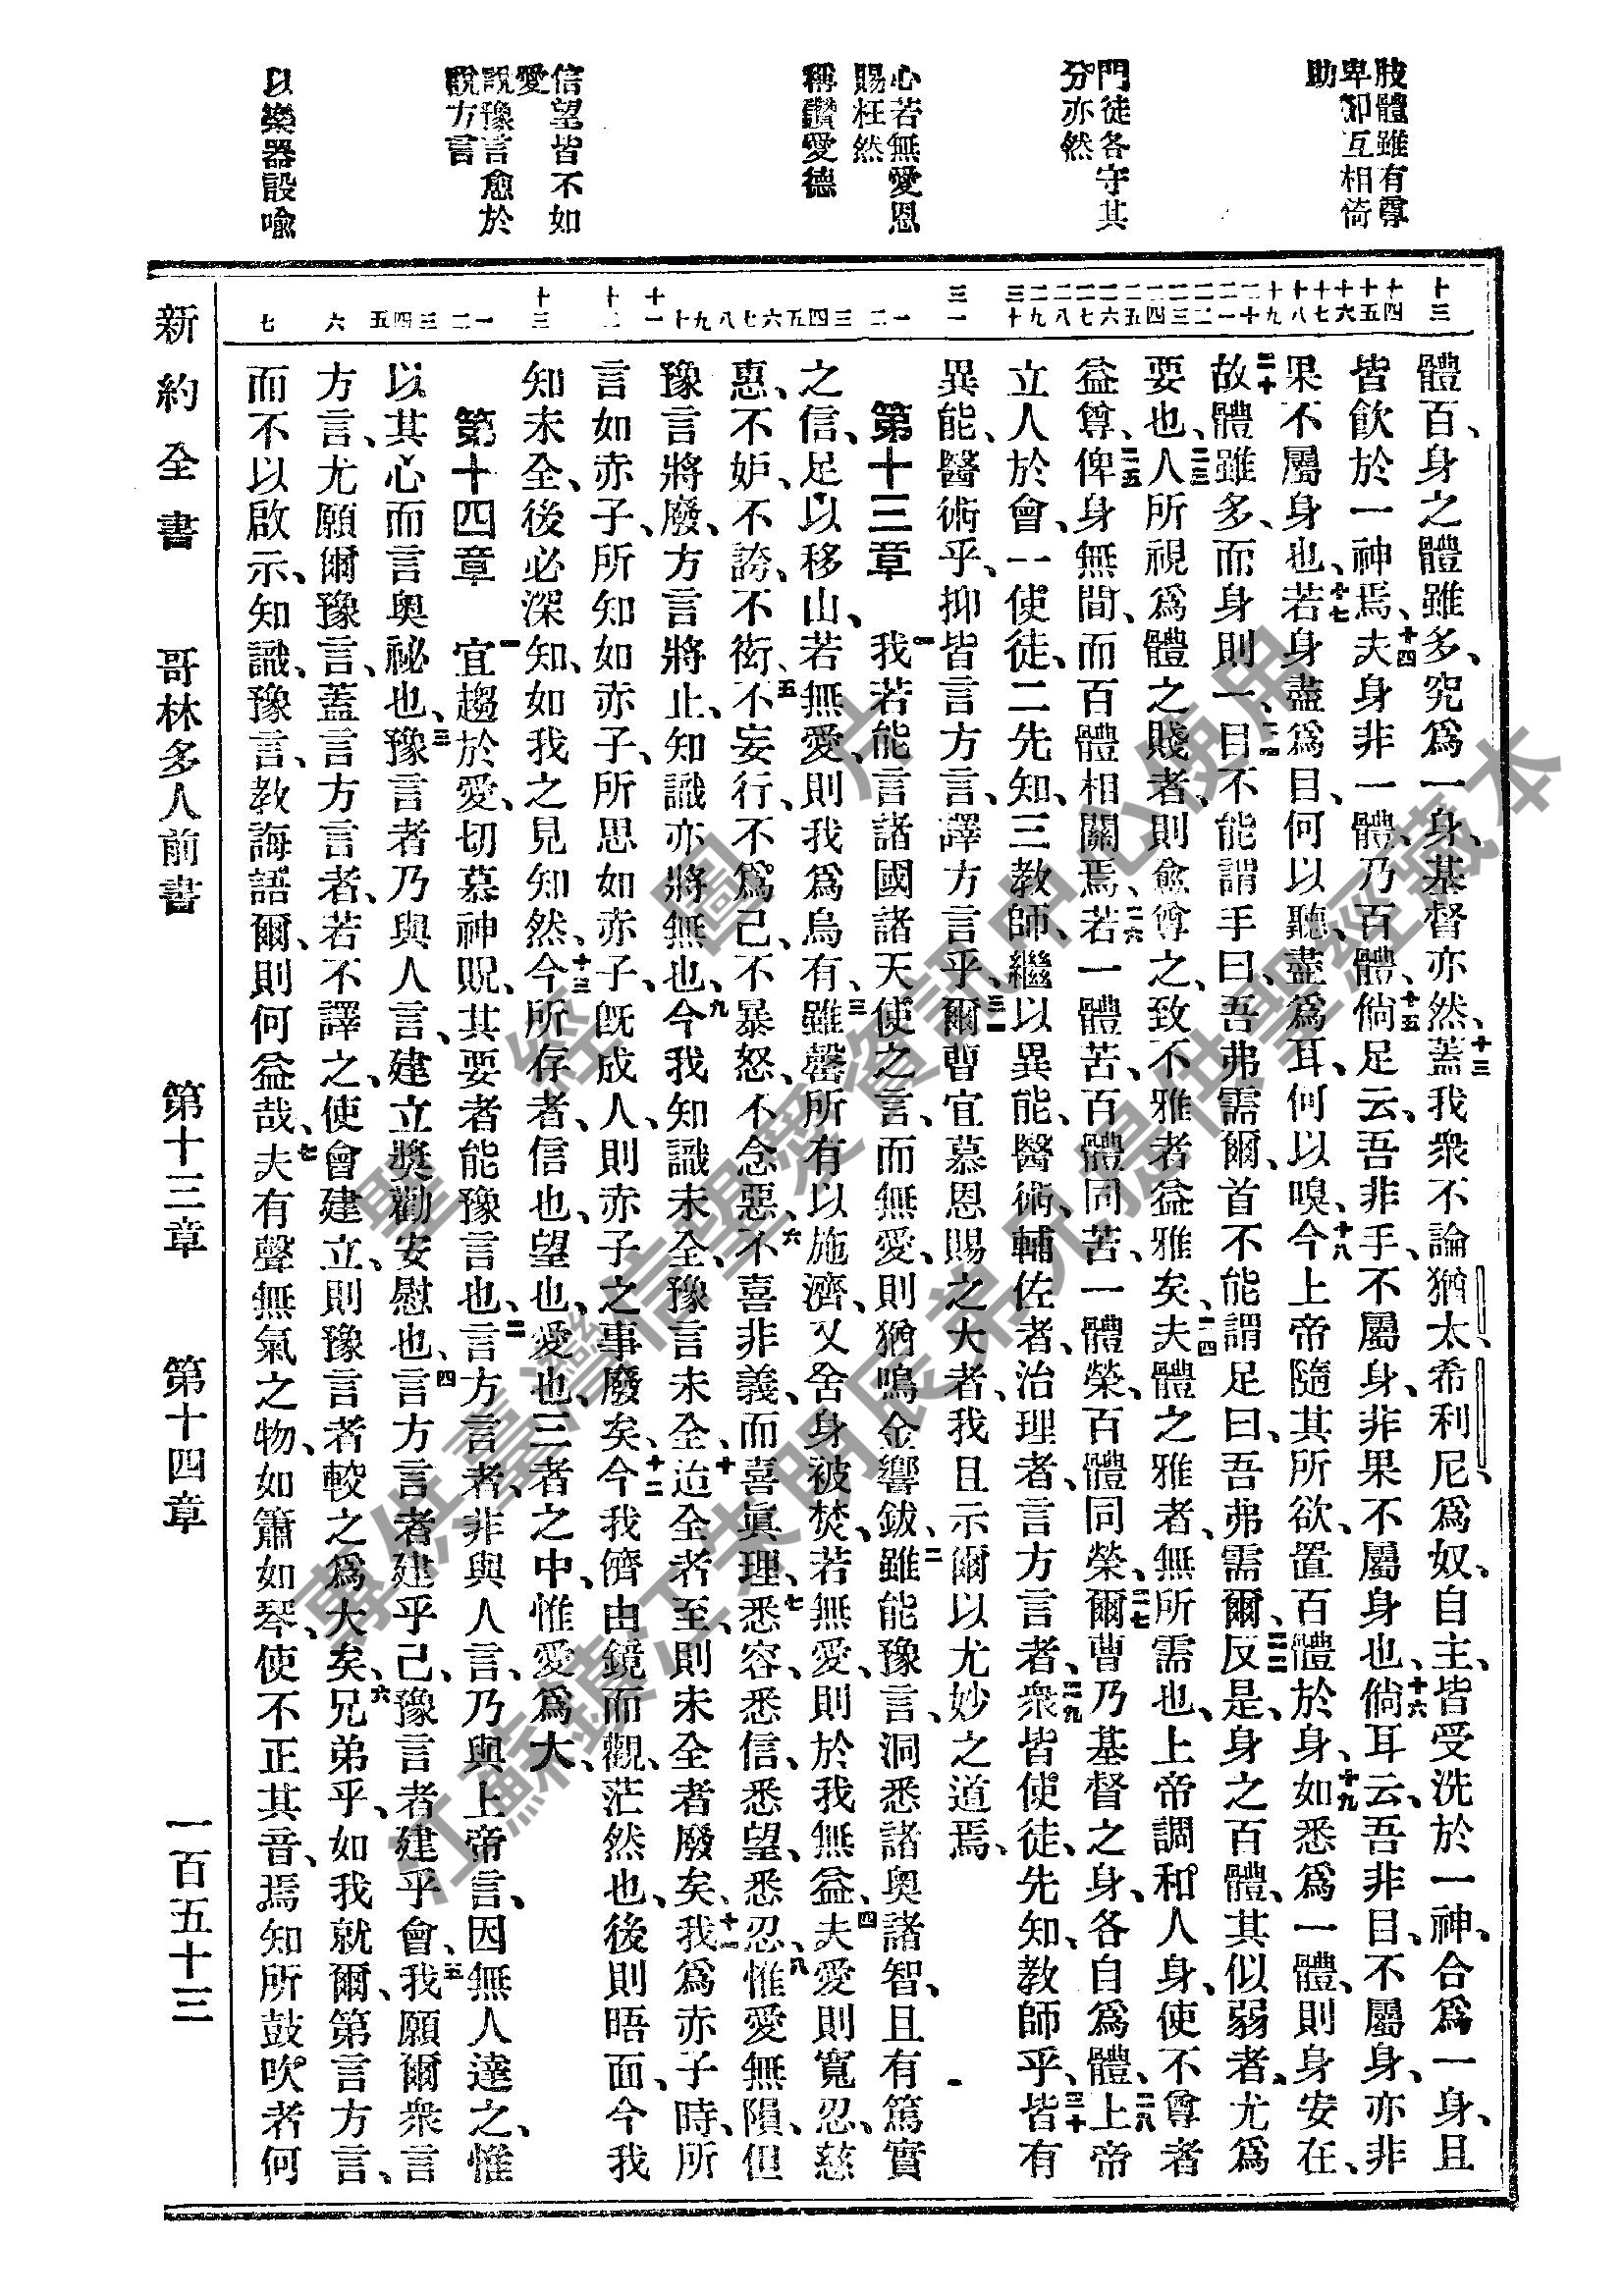 肢體雖有尊
卑卻互相倚
助
門徒各守其
分亦然
心若無愛恩
賜枉然
稱讚愛德
信望皆不如
愛
說豫言愈於
說方言
以樂器設喻
十三
十四
十五
十六
十七
十八
十九
二十
二一
二二
二三
二四
二五
二六
二七
二八
二九
三十
三一
一
二
三
四
五
六
七
八
九
十
十一
十二
十三
一
二
三
四
五
六
七
體百、身之體雖多、究爲一身、基督亦然、十三蓋我衆不論猶太、希利尼、爲奴、自主、皆受洗於一神、合爲一身、且
皆飮於一神焉、十四夫身非一體、乃百體、十五倘足云、吾非手、不屬身、非果不屬身也、十六倘耳云、吾非目、不屬身、亦非
果不屬身也、十七若身盡爲目、何以聽、盡爲耳、何以嗅、十八今上帝隨其所欲、置百體於身、十九如悉爲一體、則身安在、
二十故體雖多、而身則一、二一目不能謂手曰、吾弗需爾、首不能謂足曰、吾弗需爾、二二反是、身之百體、其似弱者、尤爲
要也、二三人所視爲體之賤者、則愈尊之、致不雅者益雅矣、二四夫體之雅者、無所需也、上帝調和人身、使不尊者
益尊、二五俾身無間、而百體相關焉、二六若一體苦、百體同苦、一體榮、百體同榮、二七爾曹乃基督之身、各自爲體、二八上帝
立人於會、一使徒、二先知、三教師、繼以異能、醫術、輔佐者、治理者、言方言者、二九衆皆使徒、先知、教師乎、三十皆有
異能、醫術乎、抑皆言方言、譯方言乎、三一爾曹宜慕恩賜之大者、我且示爾以尤妙之道焉、
第十三章 一我若能言諸國諸天使之言、而無愛、則猶鳴金響鈸、二雖能豫言、洞悉諸奧諸智、且有篤實
之信、足以移山、若無愛、則我爲烏有、三雖罄所有以施濟、又舍身被焚、若無愛、則於我無益、四夫愛則寬忍、慈
惠、不妒、不誇、不衒、五不妄行、不爲己、不暴怒、不念惡、六不喜非義、而喜眞理、七悉容、悉信、悉望、悉忍、八惟愛無隕、但
豫言將廢、方言將止、知識亦將無也、九今我知識未全、豫言未全、十迨全者至、則未全者廢矣、十一我爲赤子時、所
言如赤子、所知如赤子、所思如赤子、旣成人、則赤子之事廢矣、十二今我儕由鏡而觀、茫然也、後則晤面、今我
知未全、後必深知、如我之見知然、十三今所存者、信也、望也、愛也、三者之中、惟愛爲大、
第十四章 一宜趨於愛、切慕神貺、其要者能豫言也、二言方言者、非與人言、乃與上帝言、因無人達之、惟
以其心而言奧祕也、三豫言者乃與人言、建立獎勸安慰也、四言方言者建乎己、豫言者建乎會、五我願爾衆言
方言、尤願爾豫言、蓋言方言者、若不譯之、使會建立、則豫言者較之爲大矣、六兄弟乎、如我就爾、第言方言、
而不以啟示、知識、豫言、教誨語爾、則何益哉、七夫有聲無氣之物、如簫如琴、使不正其音、焉知所鼓吹者何
新約全書 哥林多人前書 第十三章 第十四章 一百五十三
聖經圖片
專供臺灣信望愛資訊中心使用
江蘇鎮江朱明辰弟兄提供聖經藏本